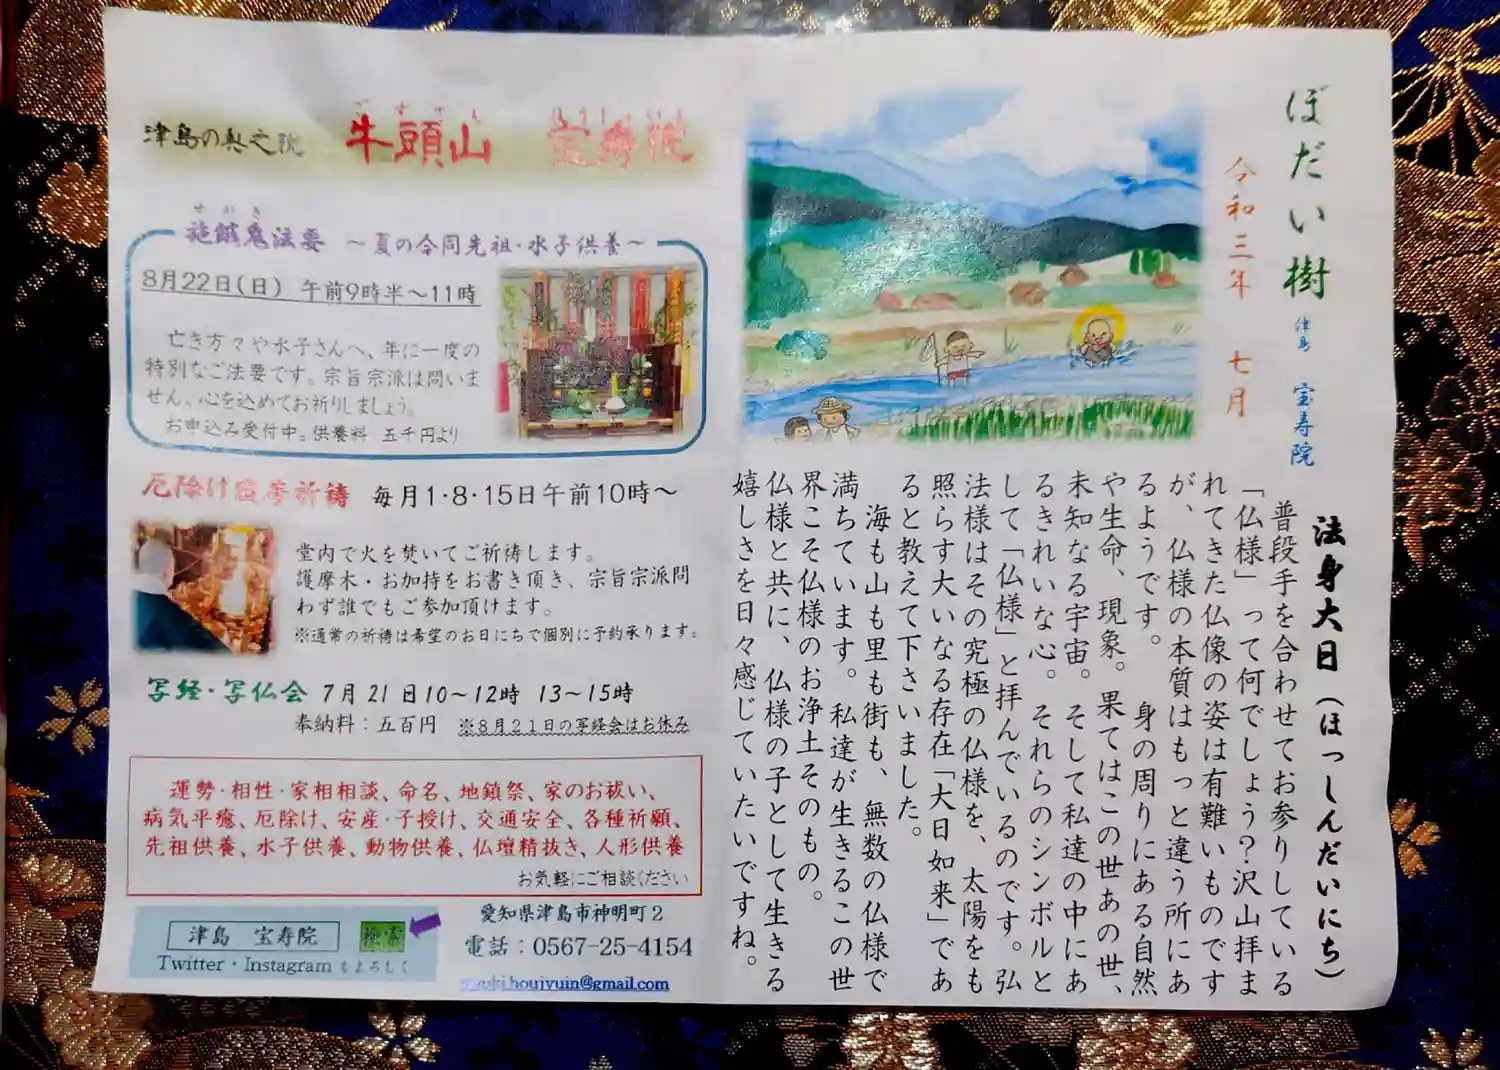 ぼだい樹
津島 宝寿院
令和三年 七月
法身大日(ほっしんだいにち)
普段手を合わせてお参りしている
「仏様」って何でしょう?沢山拝ま
れてきた仏像の姿は有難いものです
が、仏様の本質はもっと違う所にあ
るようです。 身の周りにある自然
や生命、現象。果てはこの世あの世、
未知なる宇宙。そして私達の中にあ
るきれいな心。それらのシンボルと
して「仏様」と拝んでいるのです。弘
法様はその究極の仏様を、太陽をも
照らす大いなる存在「大日如来」であ
ると教えて下さいました。
海も山も里も街も、無数の仏様で
満ちています。私達が生きるこの世
界こそ仏様のお浄土そのもの。
仏様と共に、仏様の子として生きる
嬉しさを日々感じていたいですね。
津島の奥之院
ごずさん ほうじゅいん
牛頭山 宝寿院
せがき
施餓鬼法要 ~夏の合同先祖・水子供養~
8月22日(日) 午前9時半~11時
亡き方々や水子さんへ、年に一度の
特別なご法要です。宗旨宗派は問いま
せん。心を込めてお祈りしましょう。
お申込み受付中。供養料 五千円より
厄除け護摩祈祷 毎月1・8・15日午前10時~
堂内で火を焚いてご祈祷します。
護摩木・お加持をお書き頂き、宗旨宗派問
わず誰でもご参加頂けます。
※通常の祈祷は希望のお日にちで個別に予約承ります。
写経・写仏会 7月21日10~12時 13~15時
奉納料:五百円 ※8月21日の写経会はお休み
運勢・相性・家相相談、命名、地鎮祭、家のお祓い、
病気平癒、厄除け、安産・子授け、交通安全、各種祈願、
先祖供養、水子供養、動物供養、仏壇精抜き、人形供養
お気軽にご相談ください
津島 宝寿院 検索
Twitter・Instagramもよろしく
愛知県津島市神明町2
電話:0567-25-4154
houjyuin@gmail.com